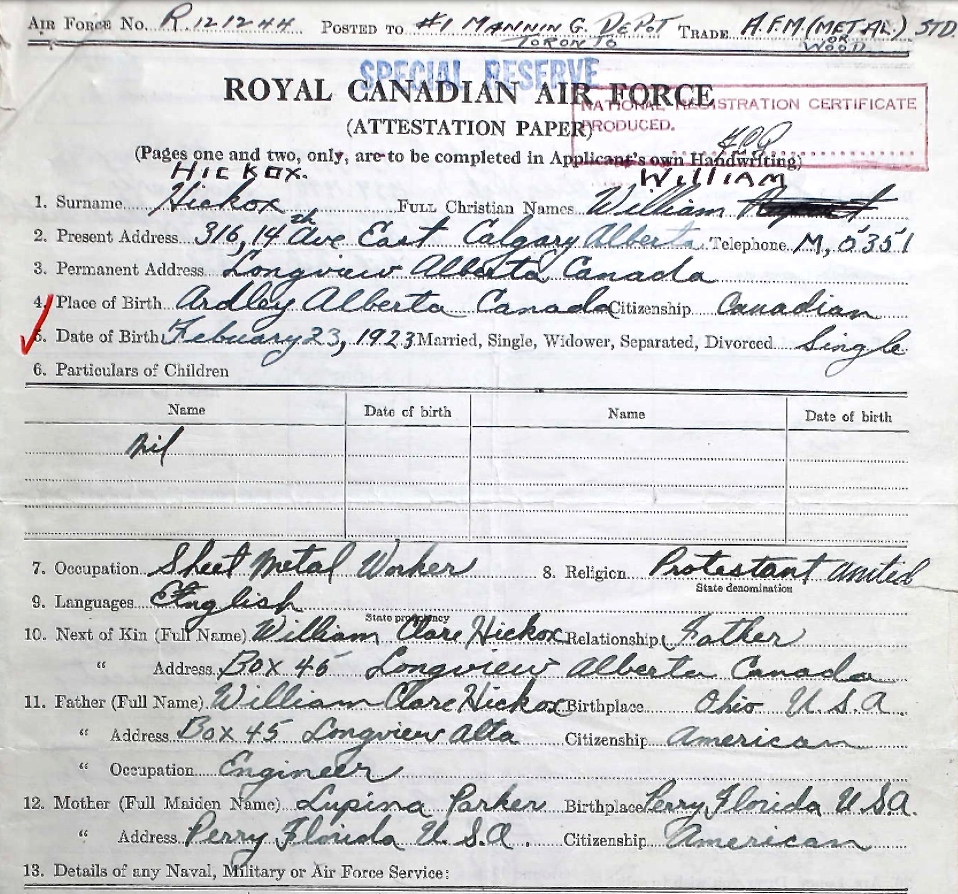 AIR FORCE No. R.121244 POSTED TO #1 MANNING DEPOT TORONTO TRADE A.F.M (METAL) STD.
OR WOOD
SPECIAL RESERVE
ROYAL CANADIAN AIR FORCE
NATIONAL REGISTRATION CERTIFICATE PRODUCED.
(ATTESTATION PAPER)
(Pages one and two, only, are to be completed in Applicant's own Handwriting)
HICKOX. WILLIAM
1. Surname Hickox FULL Christian Names William
2. Present Address 316, 14th Ave East Calgary Alberta. Telephone M, 5351
3. Permanent Address Longview Alberta Canada
4. Place of Birth Ardley Alberta Canada Citizenship Canadian
5. Date of Birth Febuary 23, 1923 Married, Single, Widower, Separated, Divorced Single
6. Particulars of Children
Name Date of birth Name Date of birth
nil
7. Occupation Sheet Metal Worker 8. Religion Protestant United
State denomination
9. Languages English
State proficiency
10. Next of Kin (Full Name) William Clare Hickox Relationship Father
" Address Box 45 Longview Alberta Canada
11. Father (Full Name) William Clare Hickox Birthplace Ohio U.S.A.
" Address Box 45 Longview Alta Citizenship American
" Occupation Engineer
12. Mother (Full Maiden Name) Lupina Parker Birthplace Perry, Florida U.S.A.
" Address Perry Florida U.S.A. Citizenship American
13. Details of any Naval, Military or Air Force Service: